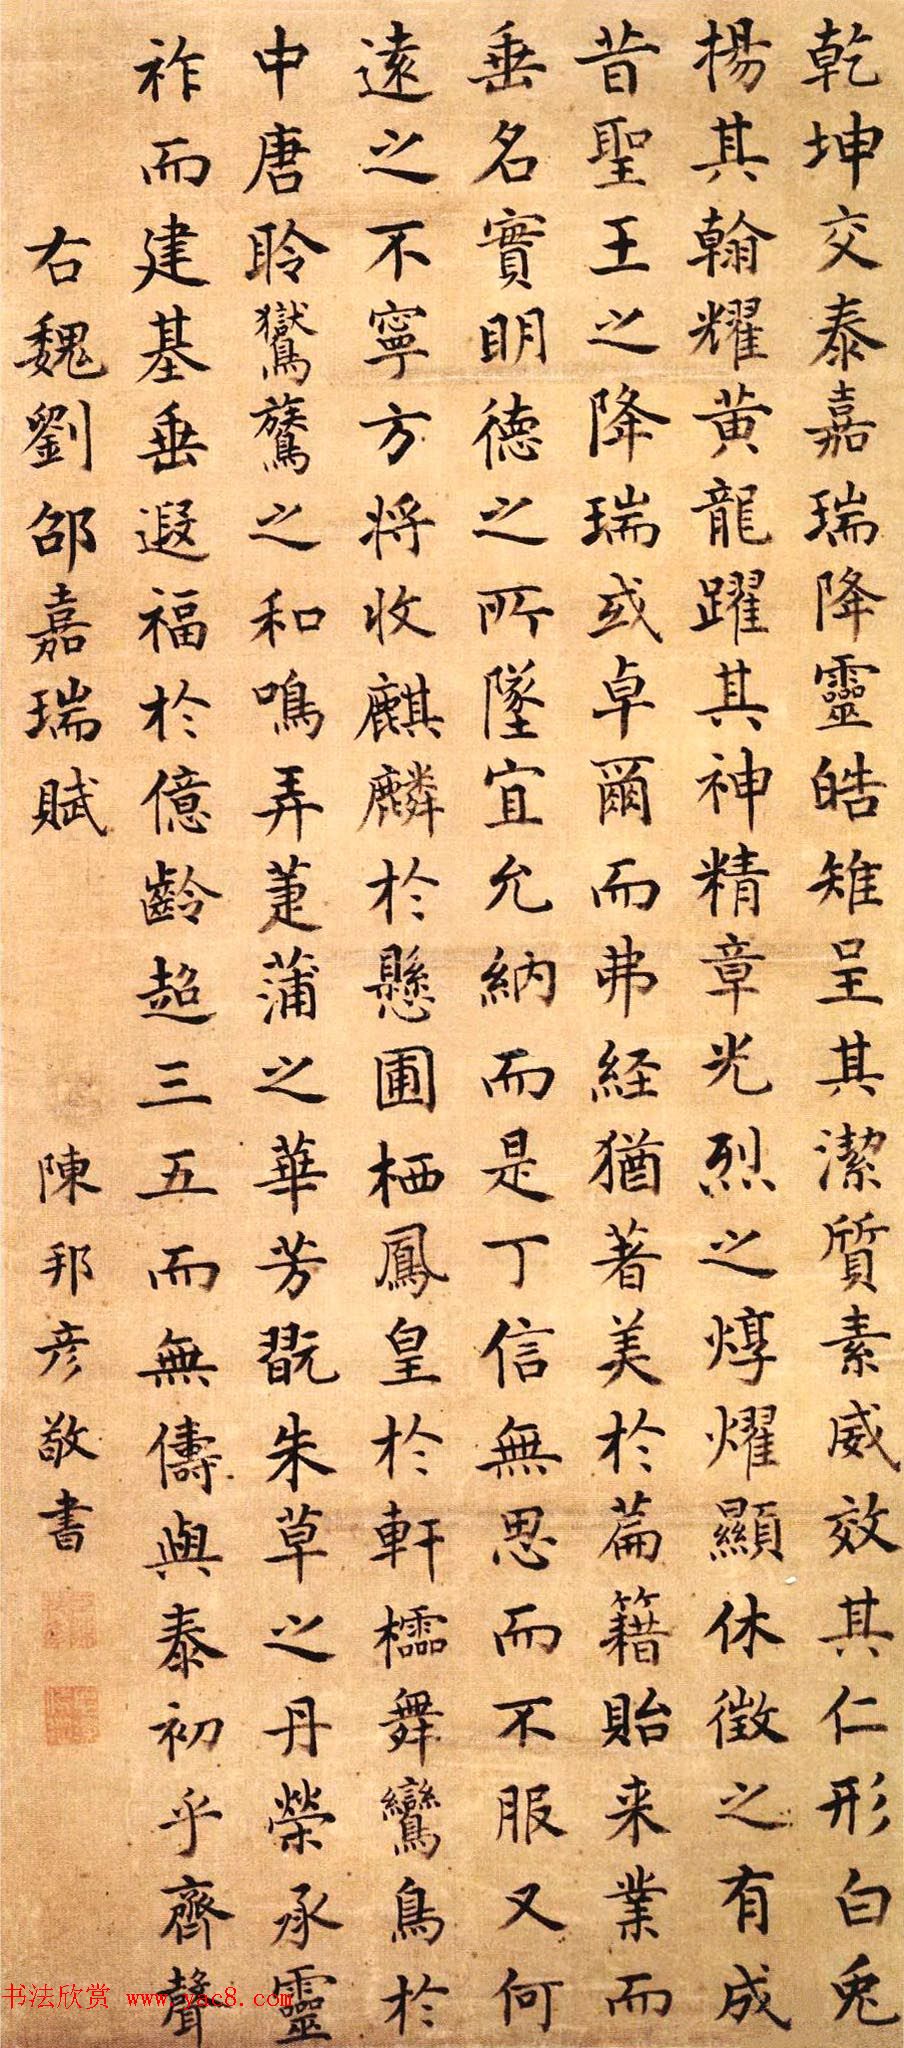 乾坤交泰嘉瑞降靈皓雉呈其潔質素威效其仁形白兎
楊其翰耀黃龍躍其神精章光烈之焞燿顯休徵之有成
昔聖王之降瑞或卓爾而弗経猶著美於篇籍貽来業而
垂名實明德之所墜宜允納而是丁信無思而不服又何
遠之不寧方将收麒麟於懸圃栖鳳皇於軒櫺舞鸞鳥於
中唐聆鸑鷟之和鳴弄萐蒲之華芳翫朱草之丹榮承靈
祚而建基垂遐福於億齡超三五而無儔與泰初乎齊聲
右魏劉邵嘉瑞賦 陳邦彦敬書
书法欣赏 www.yac8.com